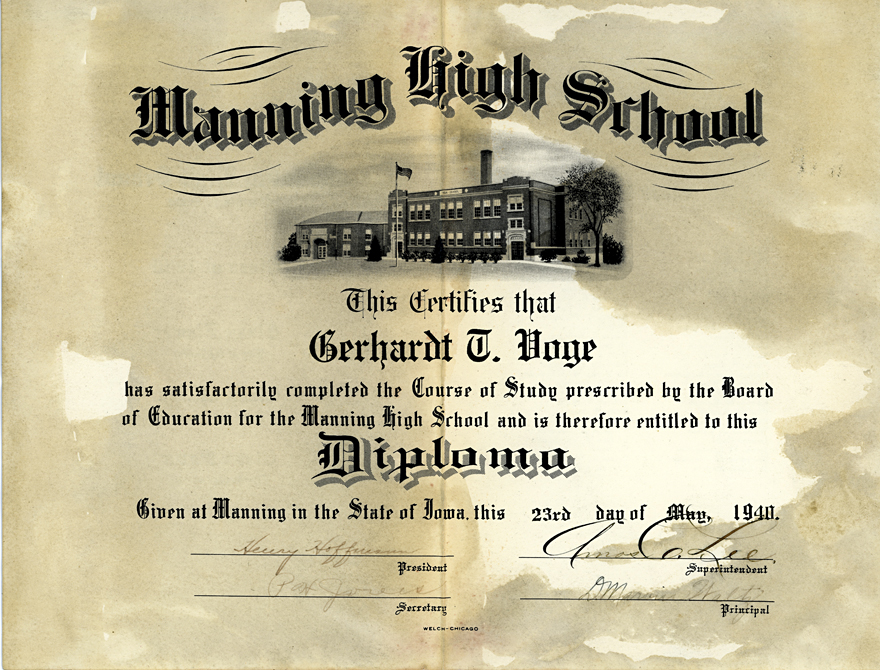 Manning High School
This Certifies that
Gerhardt T. Voge
has satisfactorily completed the Course of Study prescribed by the Board
of Education for the Manning High School and is therefore entitled to this
Diploma
Given at Manning in the State of Iowa, this 23rd day of May, 1940.
Henry Hoffmann Amos C. Lee
President Superintendent
Secretary Principal
WELCH-CHICAGO